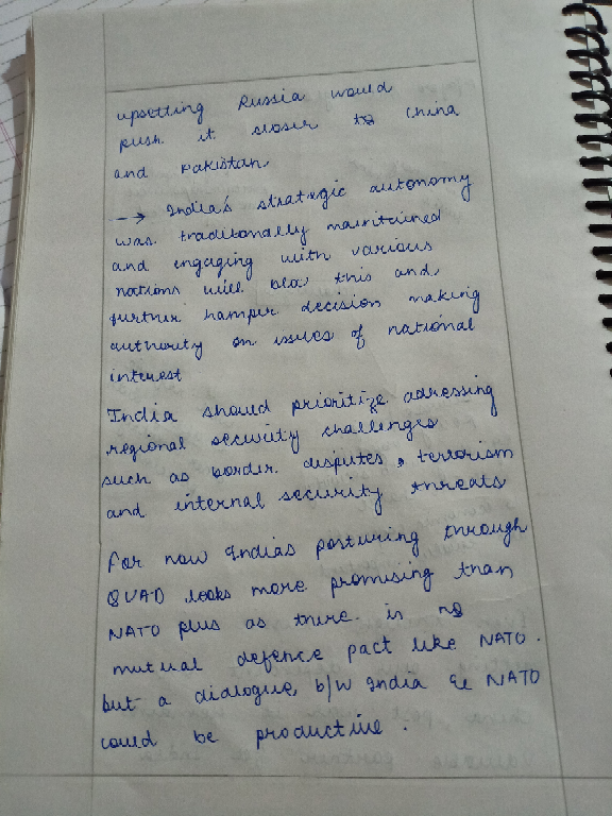 upsetting Russia would
push it closer to China
and Pakistan
→ India's strategic autonomy
was traditionally maintained
and engaging with various
nations will blow this and
further hamper decision making
authority on issues of national
interest
India should prioritize adressing
regional security challenges
such as border disputes, terrorism
and internal security threats
For now Indias posturing through
QUAD looks more promising than
NATO plus as there is no
mutual defence pact like NATO.
but a dialogue b/w India & NATO
could be productive.